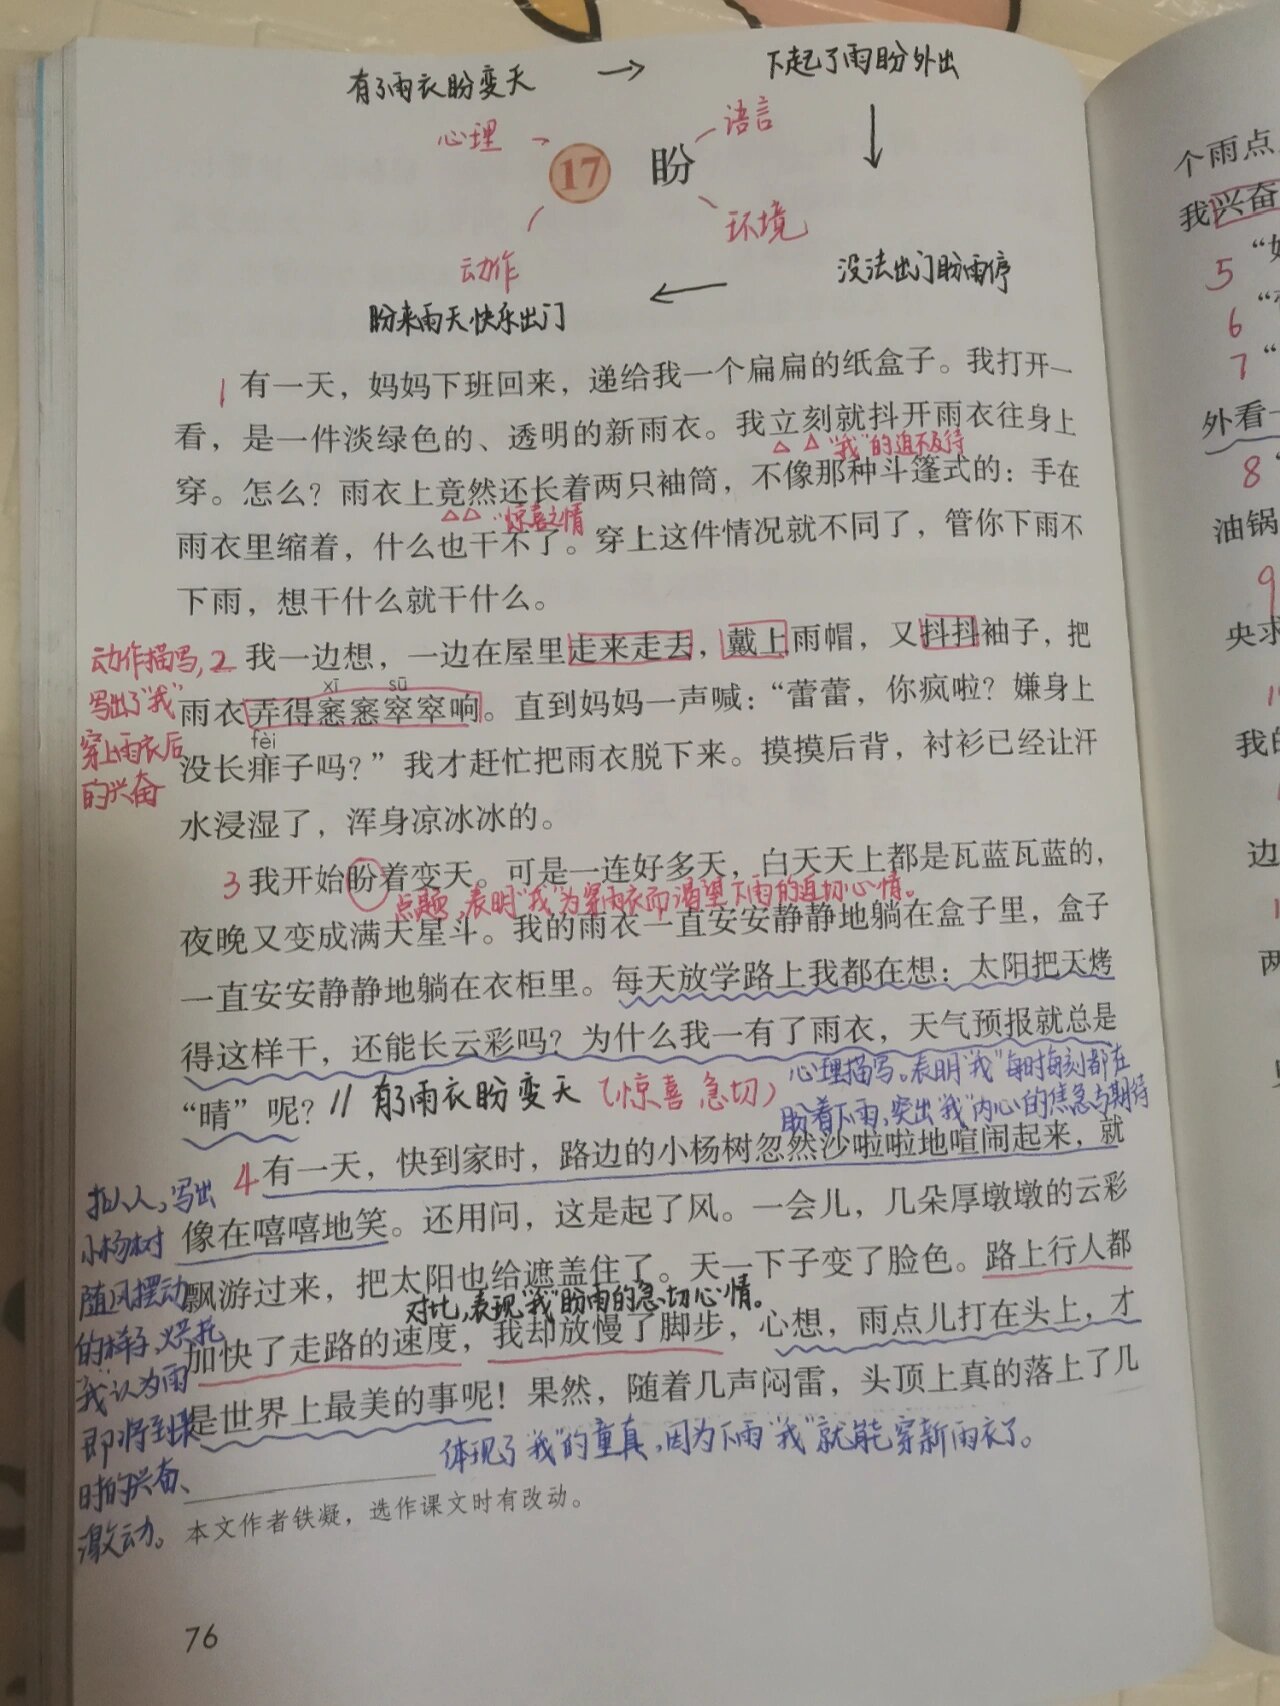 有了雨衣盼变天 → 下起了雨盼外出
心理 语言
17 盼
动作 环境
盼来雨天快乐出门 ← 没法出门盼雨停
1 有一天，妈妈下班回来，递给我一个扁扁的纸盒子。我打开一
看，是一件淡绿色的、透明的新雨衣。我立刻就抖开雨衣往身上
“我”的迫不及待
穿。怎么？雨衣上竟然还长着两只袖筒，不像那种斗篷式的：手在
惊喜之情
雨衣里缩着，什么也干不了。穿上这件情况就不同了，管你下雨不
下雨，想干什么就干什么。
动作描写，
写出了“我”
穿上雨衣后
的兴奋
2 我一边想，一边在屋里走来走去，戴上雨帽，又抖抖袖子，把
xī sū
雨衣弄得窸窸窣窣响。直到妈妈一声喊：“蕾蕾，你疯啦？嫌身上
fèi
没长痱子吗？”我才赶忙把雨衣脱下来。摸摸后背，衬衫已经让汗
水浸湿了，浑身凉冰冰的。
3 我开始盼着变天。可是一连好多天，白天天上都是瓦蓝瓦蓝的，
点题，表明“我”为穿雨衣而渴望下雨的迫切心情。
夜晚又变成满天星斗。我的雨衣一直安安静静地躺在盒子里，盒子
一直安安静静地躺在衣柜里。每天放学路上我都在想：太阳把天烤
得这样干，还能长云彩吗？为什么我一有了雨衣，天气预报就总是
“晴”呢？ // 有了雨衣盼变天（惊喜 急切）
心理描写。表明“我”每时每刻都在
盼着下雨，突出“我”内心的焦急与期待
4 有一天，快到家时，路边的小杨树忽然沙啦啦地喧闹起来，就
像在嘻嘻地笑。还用问，这是起了风。一会儿，几朵厚墩墩的云彩
飘游过来，把太阳也给遮盖住了。天一下子变了脸色。路上行人都
对比，表现“我”盼雨的急切心情。
加快了走路的速度，我却放慢了脚步，心想，雨点儿打在头上，才
是世界上最美的事呢！果然，随着几声闷雷，头顶上真的落上了几
体现了“我”的童真，因为下雨“我”就能穿新雨衣了。
拟人，写出
小杨树
随风摆动
的样子，烘托
“我”认为雨
即将到来
时的兴奋、
激动。
本文作者铁凝，选作课文时有改动。
76
个雨点
我兴奋
5
6
7
外看一
8
油锅
9
央求
我的
边
两